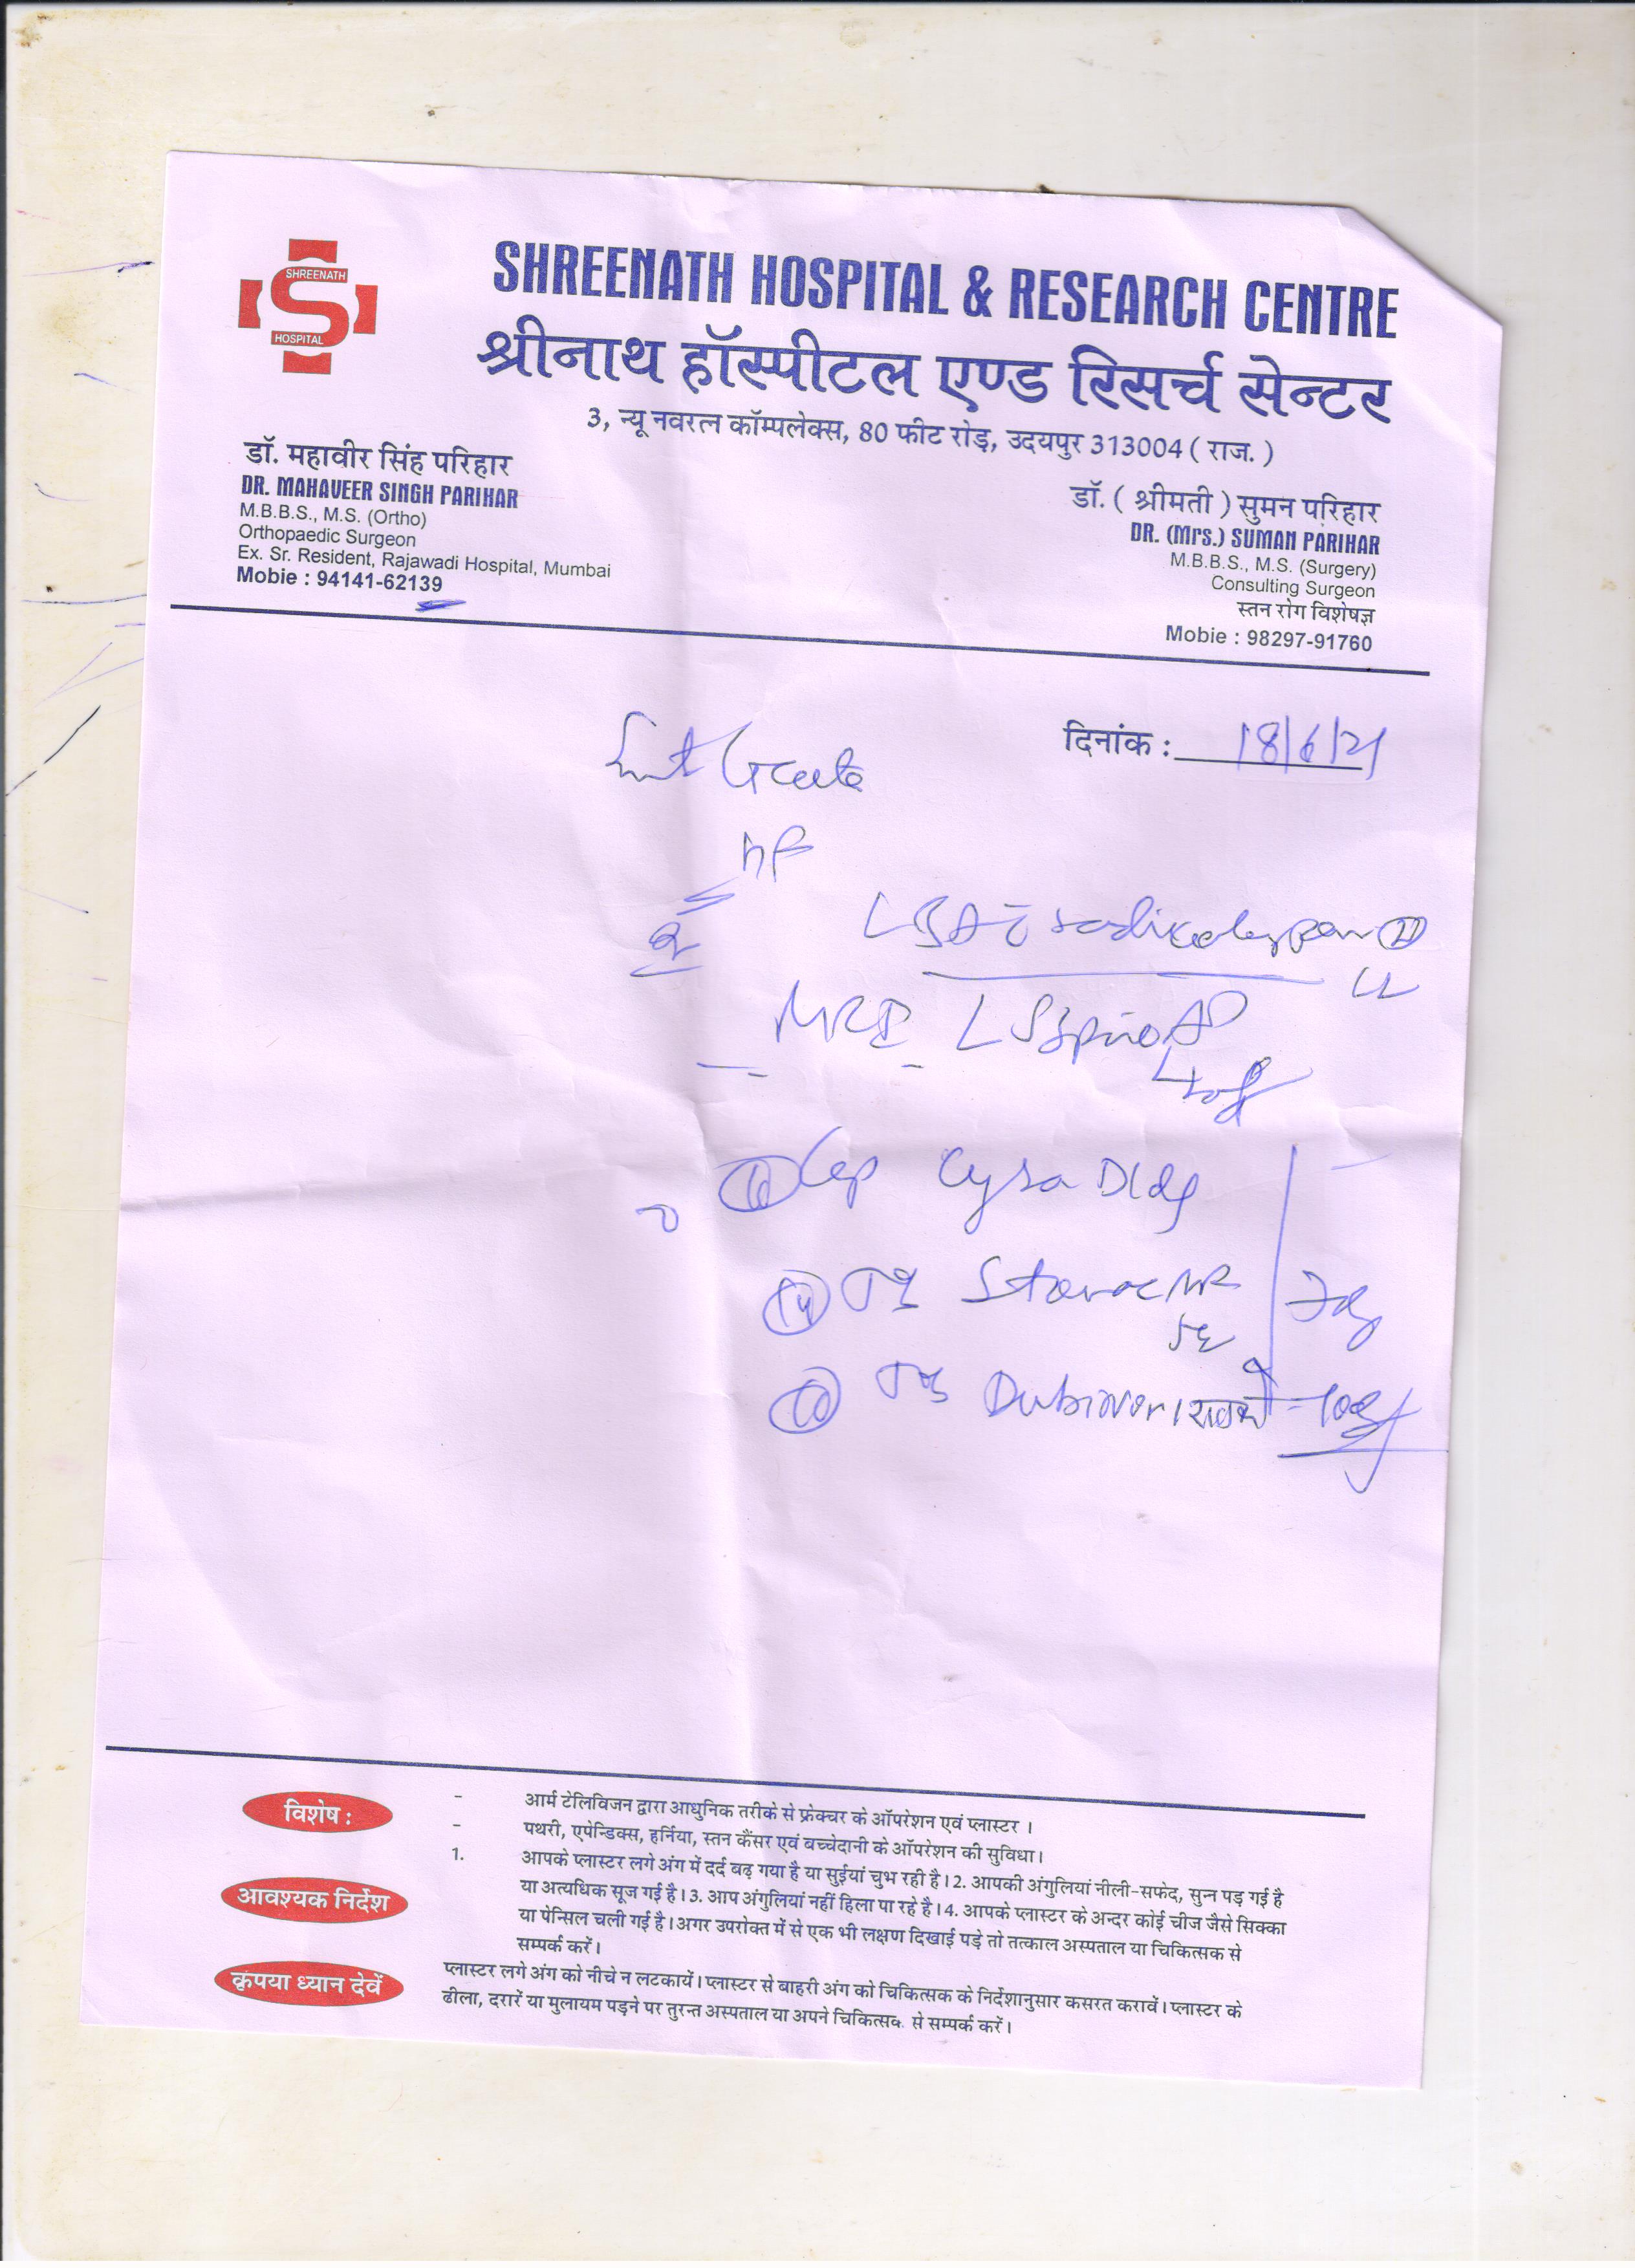 SHREENATH
S
HOSPITAL
SHREENATH HOSPITAL & RESEARCH CENTRE
श्रीनाथ हॉस्पीटल एण्ड रिसर्च सेन्टर
3, न्यू नवरत्न कॉम्पलेक्स, 80 फीट रोड़, उदयपुर 313004 ( राज. )
डॉ. महावीर सिंह परिहार
DR. MAHAVEER SINGH PARIHAR
M.B.B.S., M.S. (Ortho)
Orthopaedic Surgeon
Ex. Sr. Resident, Rajawadi Hospital, Mumbai
Mobie : 94141-62139
डॉ. ( श्रीमती ) सुमन परिहार
DR. (Mrs.) SUMAN PARIHAR
M.B.B.S., M.S. (Surgery)
Consulting Surgeon
स्तन रोग विशेषज्ञ
Mobie : 98297-91760
दिनांक : 18/6/21
Smt Geeta
MRI LS Spine
Cap Cyra D
विशेष :
- आर्म टेलिविजन द्वारा आधुनिक तरीके से फ्रेक्चर के ऑपरेशन एवं प्लास्टर ।
- पथरी, एपेन्डिक्स, हर्निया, स्तन कैंसर एवं बच्चेदानी के ऑपरेशन की सुविधा।
आवश्यक निर्देश
1. आपके प्लास्टर लगे अंग में दर्द बढ़ गया है या सुईयां चुभ रही है। 2. आपकी अंगुलियां नीली-सफेद, सुन्न पड़ गई है
या अत्यधिक सूज गई है। 3. आप अंगुलियां नहीं हिला पा रहे है। 4. आपके प्लास्टर के अन्दर कोई चीज जैसे सिक्का
या पेन्सिल चली गई है। अगर उपरोक्त में से एक भी लक्षण दिखाई पड़े तो तत्काल अस्पताल या चिकित्सक से
सम्पर्क करें।
कृपया ध्यान देवें
प्लास्टर लगे अंग को नीचे न लटकायें। प्लास्टर से बाहरी अंग को चिकित्सक के निर्देशानुसार कसरत करावें। प्लास्टर के
ढीला, दरारें या मुलायम पड़ने पर तुरन्त अस्पताल या अपने चिकित्सक से सम्पर्क करें।